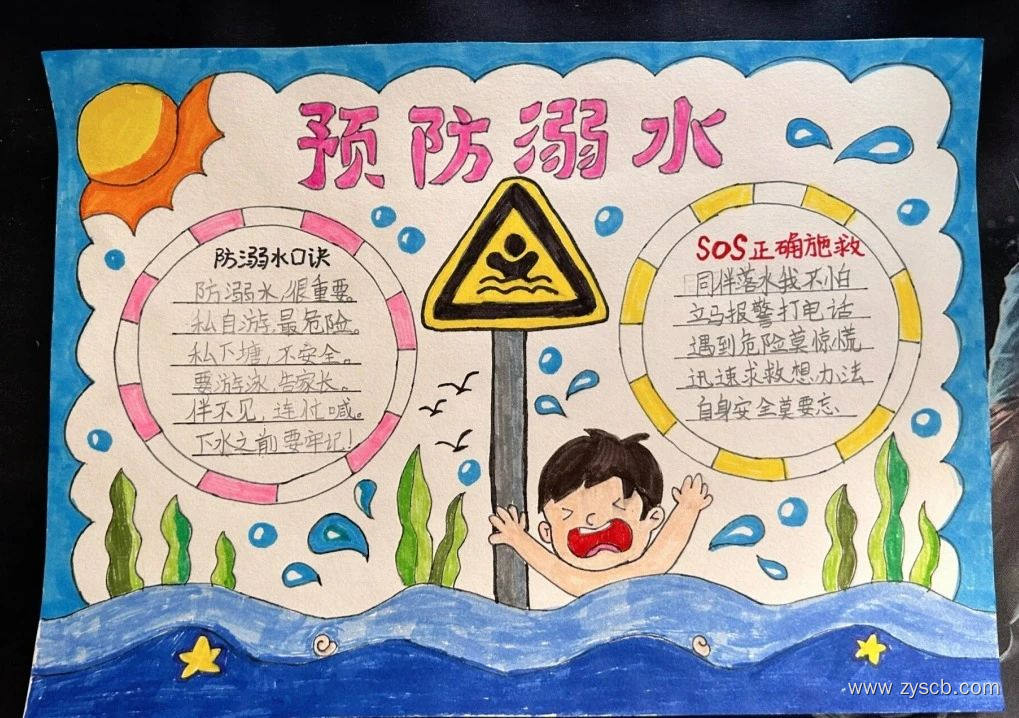 预防溺水
防溺水口诀
防溺水,很重要。
私自游,最危险。
私下塘,不安全。
要游泳,告家长。
伴不见,连忙喊。
下水之前要牢记!
SOS正确施救
同伴落水我不怕
立马报警打电话
遇到危险莫惊慌
迅速求救想办法
自身安全莫要忘.
www.zyscb.com